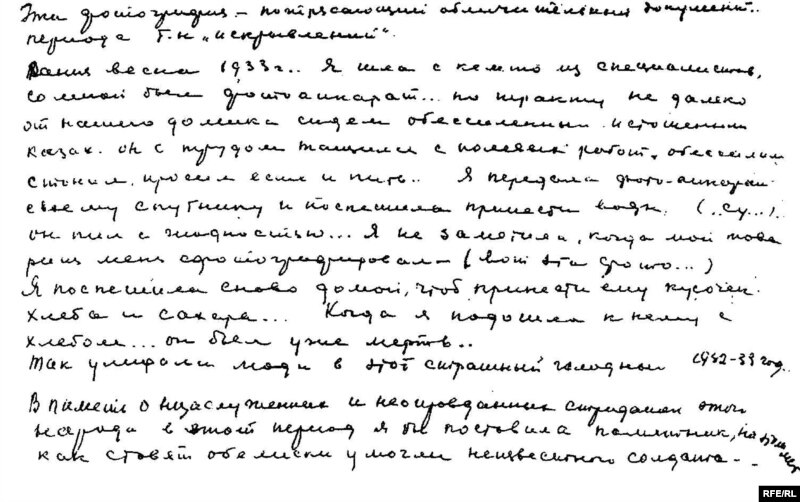 Эта фотография – потрясающий обличительный документ..
периода т.н. „искривлений“.
Ранняя весна 1933 г.. Я шла с кем то из специалистов,
со мной был фотоаппарат... по тракту не далеко
от нашего домика сидел обессиленный истощенный
казах. он с трудом тащился с полевых работ, обессилил
стонал, просил есть и пить.. Я передала фото-аппарат
своему спутнику и поспешила принести воды.
он пил с жадностью... Я не заметила, когда мой това
рищ меня сфотографировал – (вот эта фото...)
Я поспешила снова домой, чтоб принести ему кусочек
хлеба и сахара... Когда я подошла к нему с
хлебом... он был уже мертв..
так умирали люди в этот страшный голодный 1932-33 год..
В память о незаслуженных и неоправданных страданиях этого
народа в этот период я бы поставила памятник,
как ставят обелиски у могил неизвестного солдата..
RFE/RL